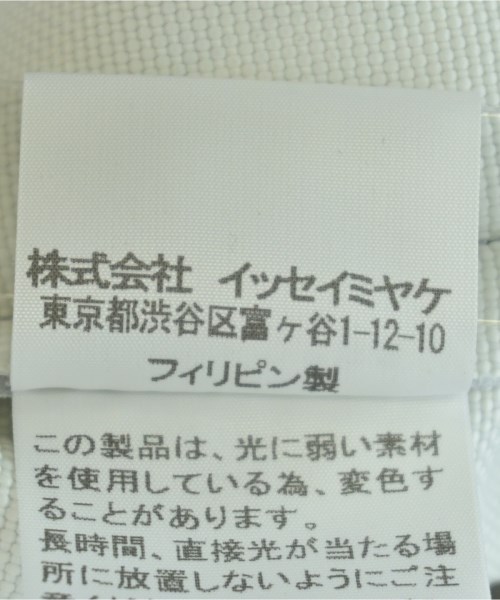 株式会社 イッセイミヤケ
東京都渋谷区富ヶ谷1-12-10
フィリピン製
この製品は、光に弱い素材
を使用している為、変色す
ることがあります。
長時間、直接光が当たる場
所に放置しないようにご注